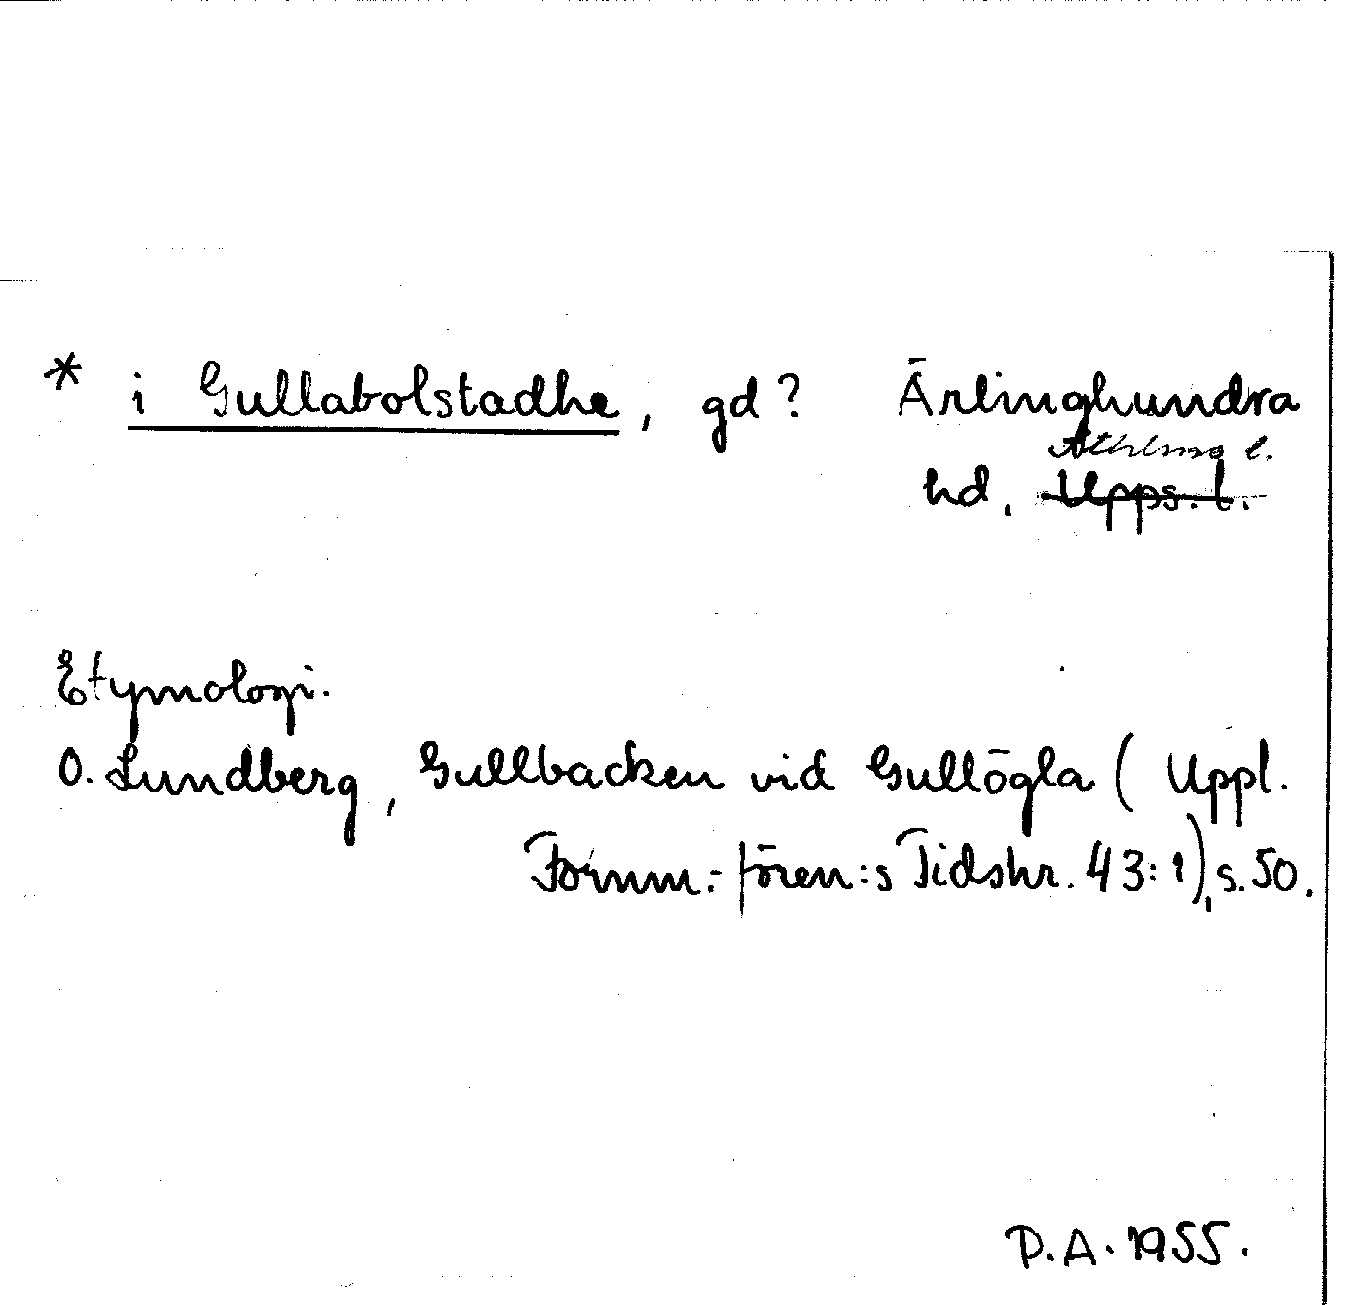 * i Gullabolstadhe, gd? Ärlinghundra
Sthlms l.
hd, Upps. l.
Etymologi.
O. Lundberg, Gullbacken vid Gullögla (Uppl.
Fornm.-fören:s Tidskr. 43:1), s. 50.
P.A. 1955.